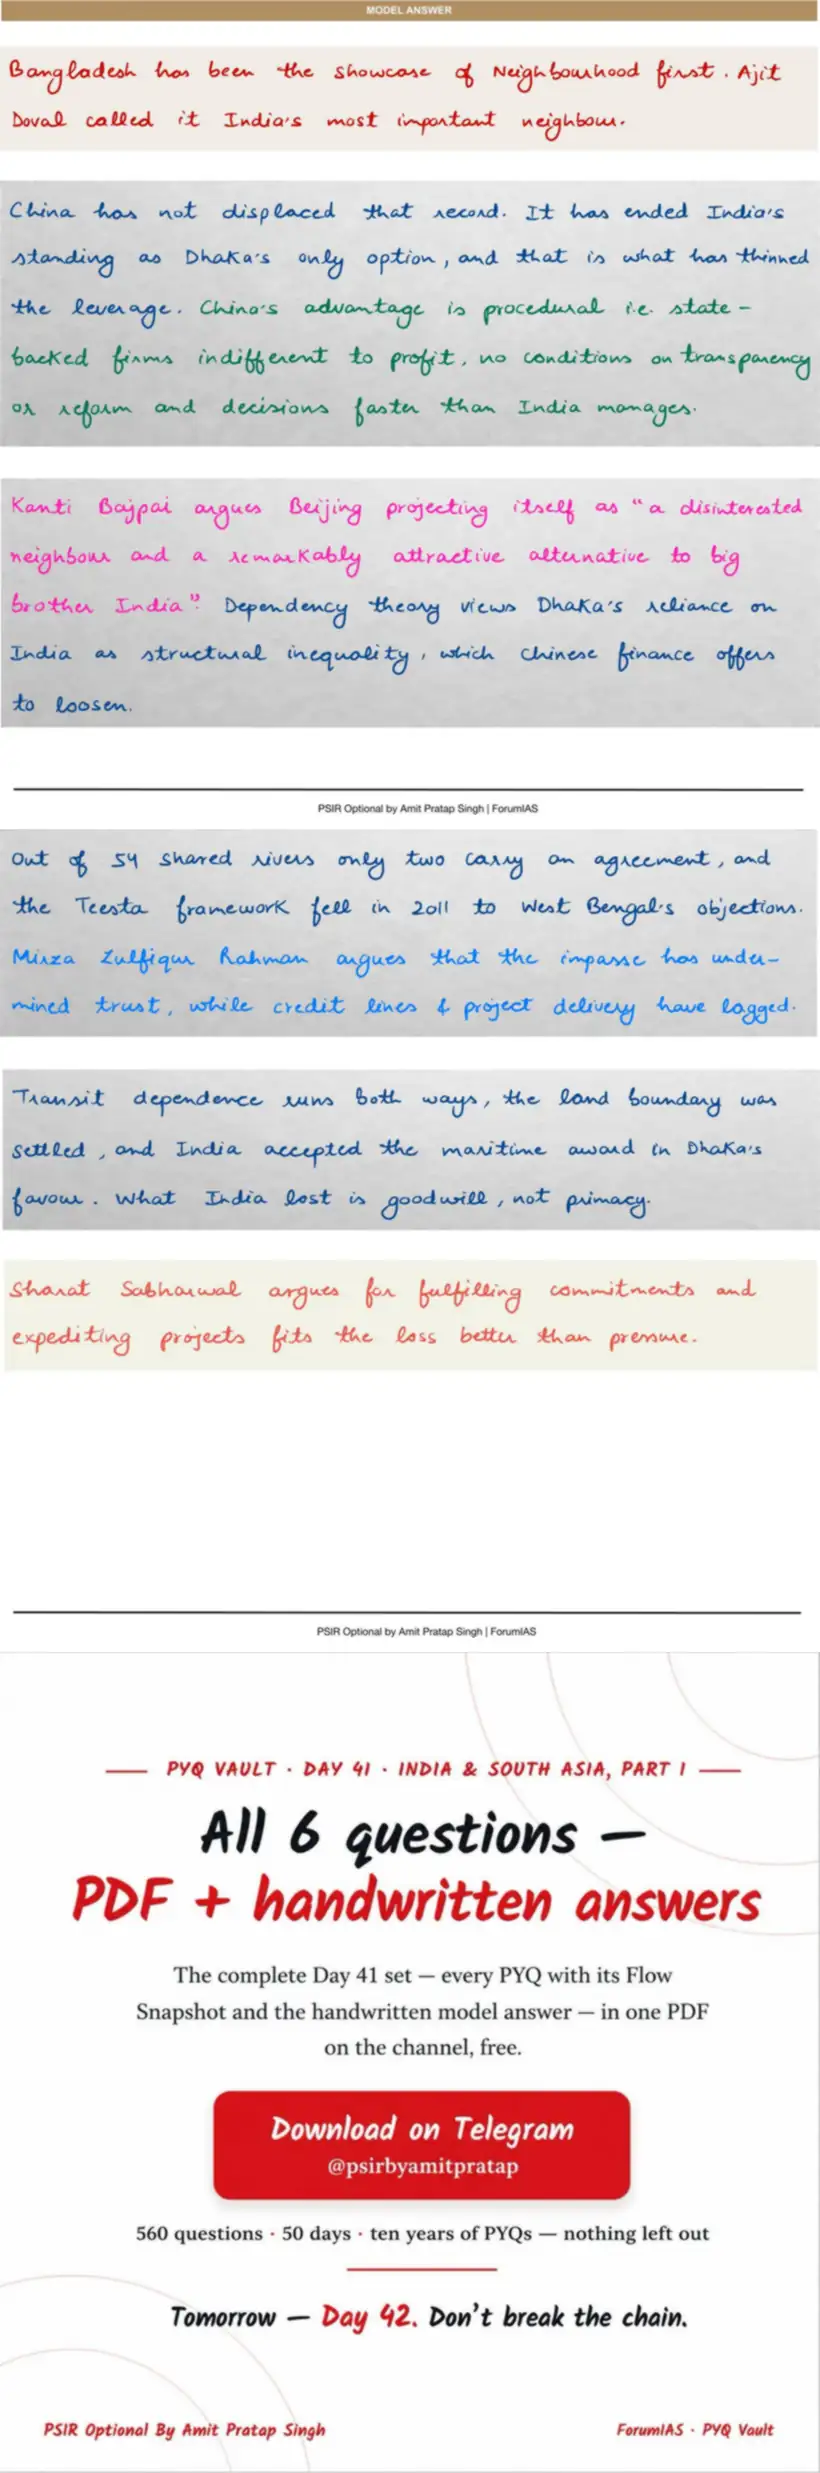 MODEL ANSWER
Bangladesh has been the showcase of Neighbourhood first. Ajit
Doval called it India's most important neighbour.
China has not displaced that record. It has ended India's
standing as Dhaka's only option, and that is what has thinned
the leverage. China's advantage is procedural i.e. state-
backed firms indifferent to profit, no conditions on transparency
or reform and decisions faster than India manages.
Kanti Bajpai argues Beijing projecting itself as "a disinterested
neighbour and a remarkably attractive alternative to big
brother India". Dependency theory views Dhaka's reliance on
India as structural inequality, which Chinese finance offers
to loosen.
PSIR Optional by Amit Pratap Singh | ForumIAS
Out of 54 shared rivers only two carry an agreement, and
the Teesta framework fell in 2011 to West Bengal's objections.
Mirza Zulfiqur Rahman argues that the impasse has under-
mined trust, while credit lines & project delivery have lagged.
Transit dependence runs both ways, the land boundary was
settled, and India accepted the maritime award in Dhaka's
favour. What India lost is goodwill, not primacy.
Sharat Sabharwal argues for fulfilling commitments and
expediting projects fits the loss better than pressure.
PSIR Optional by Amit Pratap Singh | ForumIAS
PYQ VAULT · DAY 41 · INDIA & SOUTH ASIA, PART I
All 6 questions —
PDF + handwritten answers
The complete Day 41 set — every PYQ with its Flow
Snapshot and the handwritten model answer — in one PDF
on the channel, free.
Download on Telegram
@psirbyamitpratap
560 questions · 50 days · ten years of PYQs — nothing left out
Tomorrow — Day 42. Don't break the chain.
PSIR Optional By Amit Pratap Singh
ForumIAS · PYQ Vault